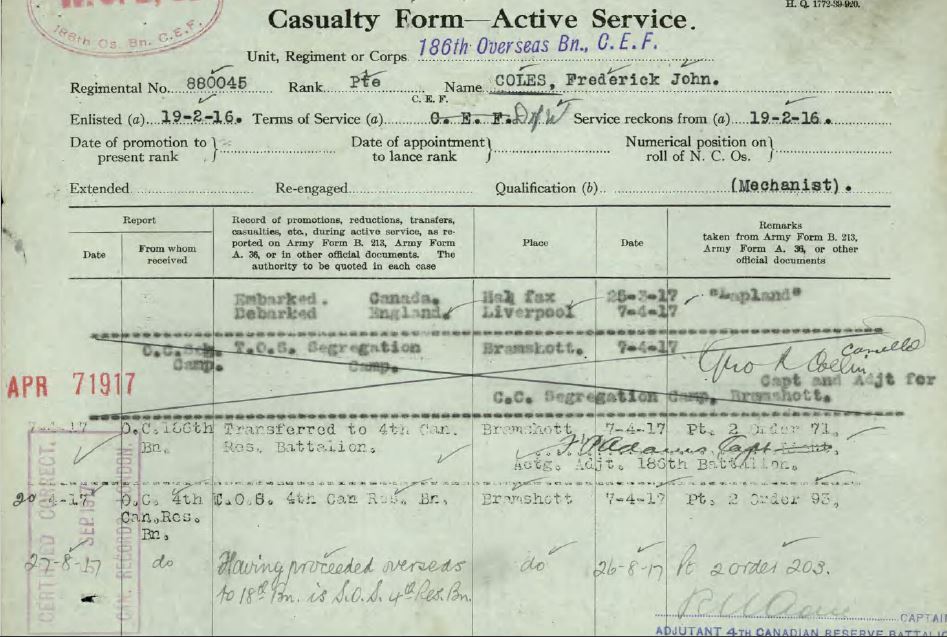 H. Q. 1772-39-920.
186th Os. Bn. C.E.F.
Casualty Form—Active Service.
Unit, Regiment or Corps 186th Overseas Bn., C.E.F.
Regimental No. 880045 Rank Pte Name COLES, Frederick John.
C. E. F.
Enlisted (a) 19-2-16. Terms of Service (a) C. E. F. Service reckons from (a) 19-2-16.
Date of promotion to present rank Date of appointment to lance rank Numerical position on roll of N. C. Os.
Extended Re-engaged Qualification (b) (Mechanist).
Report
Date
From whom received
Record of promotions, reductions, transfers,
casualties, etc., during active service, as re-
ported on Army Form B. 213, Army Form
A. 36, or in other official documents. The
authority to be quoted in each case
Place
Date
Remarks
taken from Army Form B. 213,
Army Form A. 36, or other
official documents
Embarked. Canada. Halifax 25-3-17 "Lapland"
Debarked England. Liverpool 7-4-17
T.O.S. Segregation Bramshott. 7-4-17
Camp. Camp.
Cancelled
APR 7 1917
Capt and Adjt for
C.C. Segregation Camp, Bramshott.
7-4-17 O.C. 186th Transferred to 4th Can. Bramshott 7-4-17 Pt. 2 Order 71.
Bn. Res. Battalion.
Actg. Adjt. 186th Battalion.
20-4-17 O.C. 4th T.O.S. 4th Can Res. Bn. Bramshott 7-4-17 Pt. 2 Order 93.
Can. Res.
Bn.
27-8-17 do Having proceeded overseas do 26-8-17 Pt 2 order 203.
to 18th Bn. is S.O.S. 4th Res. Bn.
CERTIFIED CORRECT.
SEP 1917
CAN. RECORDS, LONDON.
CAPTAIN
ADJUTANT 4TH CANADIAN RESERVE BATTALION